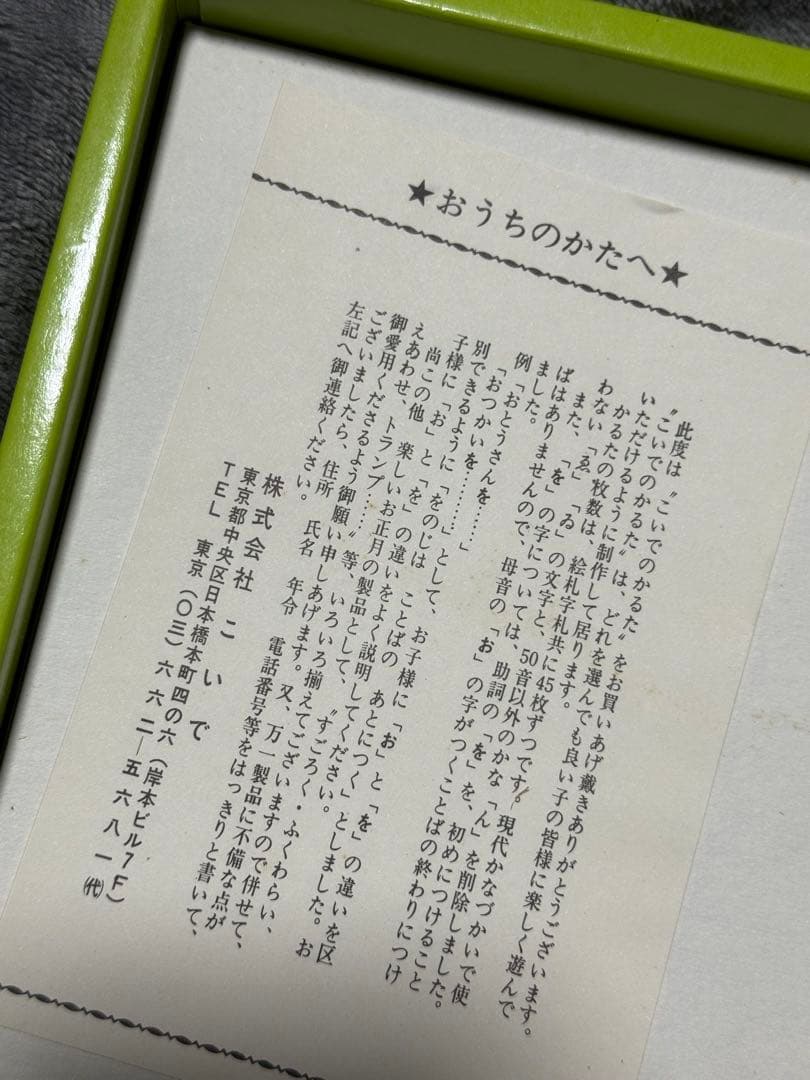 ★おうちのかたへ★
此度は〝こいでのかるた〟をお買いあげ戴きありがとうございます。
〝こいでのかるた〟は、どれを選んでも良い子の皆様に楽しく遊んで
いただけるように制作して居ります。
かるたの枚数は、絵札字札共に45枚ずつです。現代かなづかいで使
わない「ゑ」「ゐ」の文字と、50音以外のかな「ん」を削除しました。
また、「を」の字については、助詞の「を」を、初めにつけること
ばはありませんので、母音の「お」の字がつくことばの終わりにつけ
ました。
例「おとうさんを……」
「おつかいを………」として、お子様に「お」と「を」の違いを区
別できるように「をのじは ことばの あとにつく」としました。お
子様に「お」と「を」の違いをよく説明してください。
尚この他、楽しいお正月の製品として、〝すごろく・ふくわらい、
えあわせ、トランプ……〟等、いろいろ揃えてございますので併せて、
御愛用くださるよう御願い申しあげます。又、万一製品に不備な点が
ございましたら、住所 氏名 年令 電話番号等をはっきりと書いて、
左記へ御連絡ください。
株式会社 こいで
東京都中央区日本橋本町四の六(岸本ビル7F)
TEL 東京(〇三)六六二―五六八一㈹